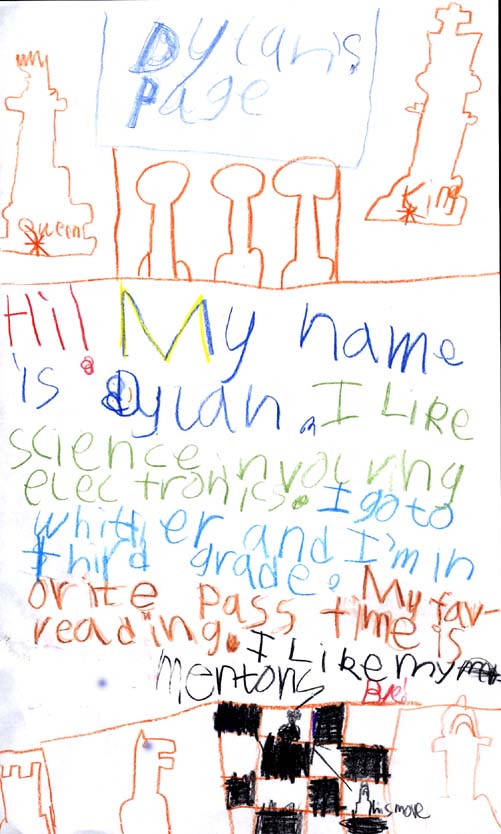 Dylan's
Page
King
Queen
Hi! My name
is Dylan. I Like
science involving
electronics. I go to
whittier and I'm in
third grade. My fav-
orite pass time is
reading. I Like my
mentors
his move